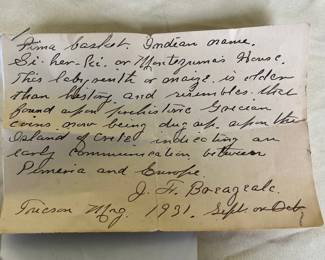 Pima basket. Indian name.
Si-her-Ki. or Montezuma's House.
This labyrinth or maize is older
than history and resembles those
found upon prehistoric Grecian
coins now being dug up upon the
Island of Crete indicating an
early communication between
Pimeria and Europe.
J. H.
Tucson 1931. Sept. or Oct